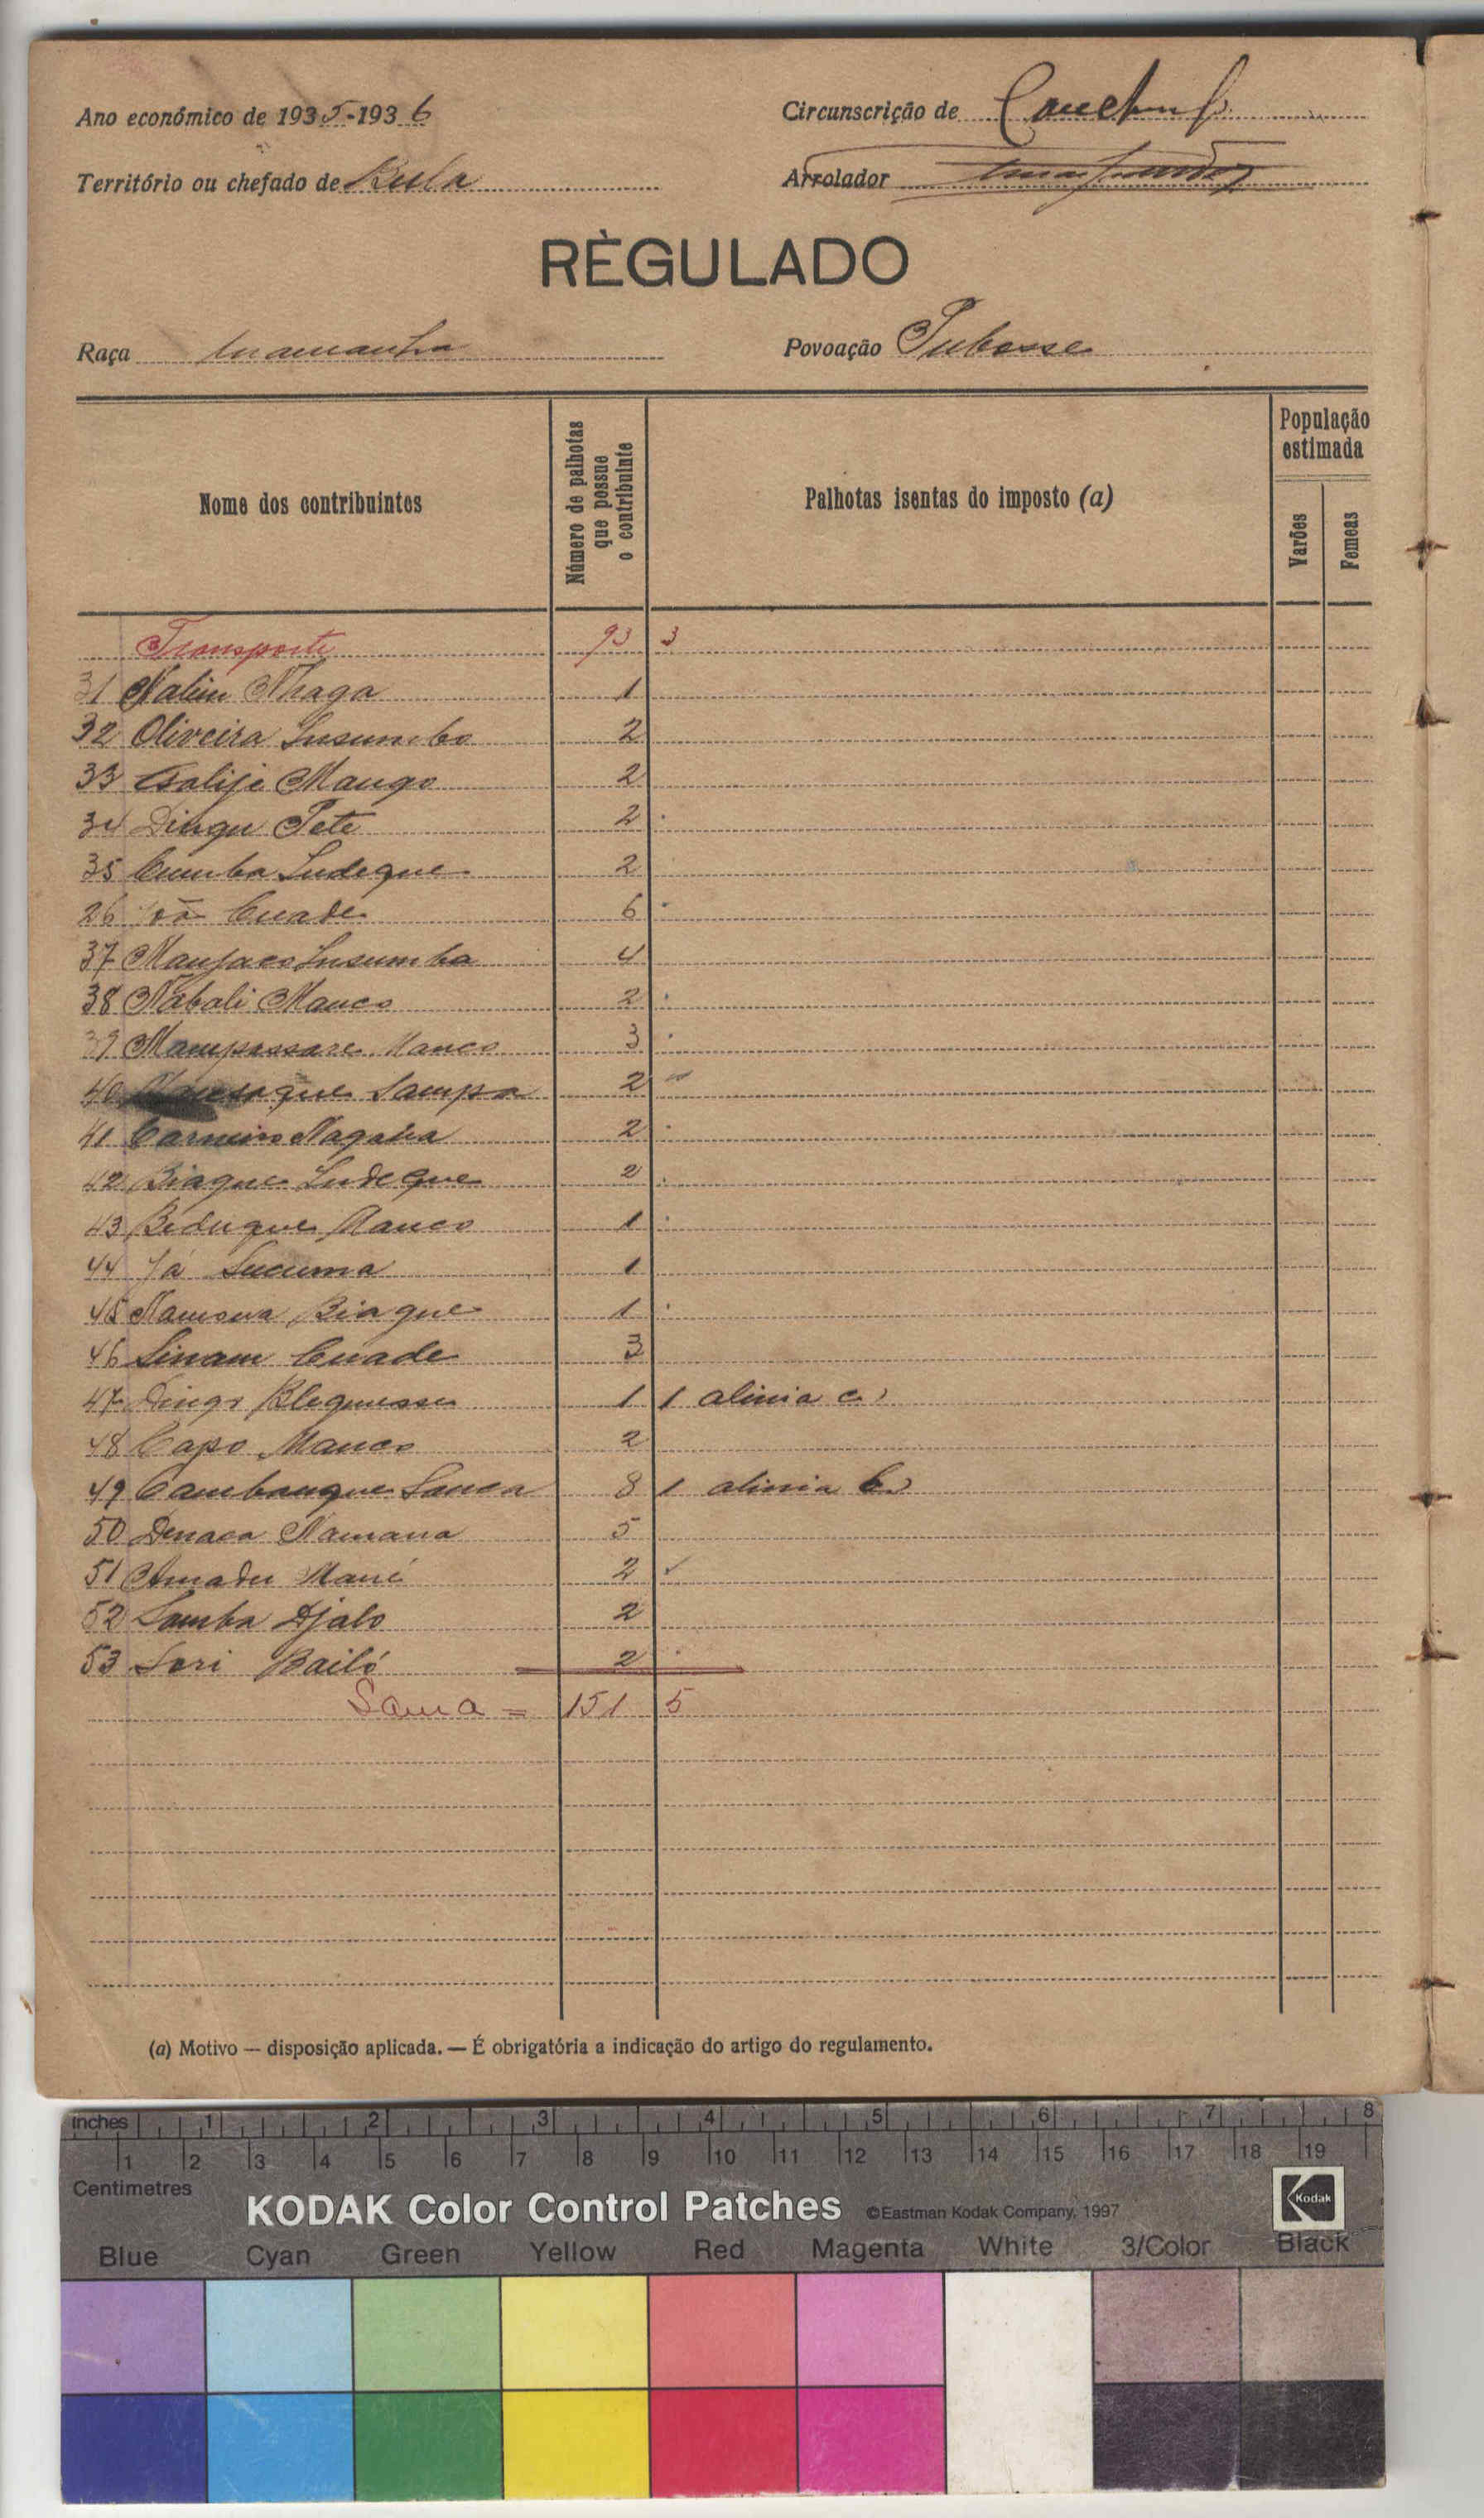 Ano económico de 1935-1936
Circunscrição de
Território ou chefado de Kula
Arrolador
RÈGULADO
Raça
Povoação Tubosse
Nome dos contribuintes
Número de palhotas que possue o contribuinte
Palhotas isentas do imposto (a)
População estimada
Varões
Femeas
Transporte 93 3
31 Nalin Nhaga 1
32 Oliveira Insumbo 2
33 Mango 2
34 Dingu Pete 2
35 Cumba Indeque 2
26 Cuade 6
37 Manjaco Insumba 4
38 Nabali Manco 2
39 Mampassare Manco 3
40 Sampa 2
41 Carneiro 2
42 Biaque Indeque 2
43 Biduque Manco 1
44 Já 1
45 Namona Biaque 1
46 Sinam Cuade 3
47 Dingo 1 1 alinia c)
48 Capo Manco 2
49 Cambanque Sanca 8 1 alinia b)
50 Denaca Namana 5
51 Amadu Mané 2
52 Samba Djalo 2
53 Sori Bailó 2
Soma = 151 5
(a) Motivo — disposição aplicada. — É obrigatória a indicação do artigo do regulamento.
inches 1 2 3 4 5 6 7 8
1 2 3 4 5 6 7 8 9 10 11 12 13 14 15 16 17 18 19
Centimetres
KODAK Color Control Patches ©Eastman Kodak Company, 1997 Kodak
Blue Cyan Green Yellow Red Magenta White 3/Color Black